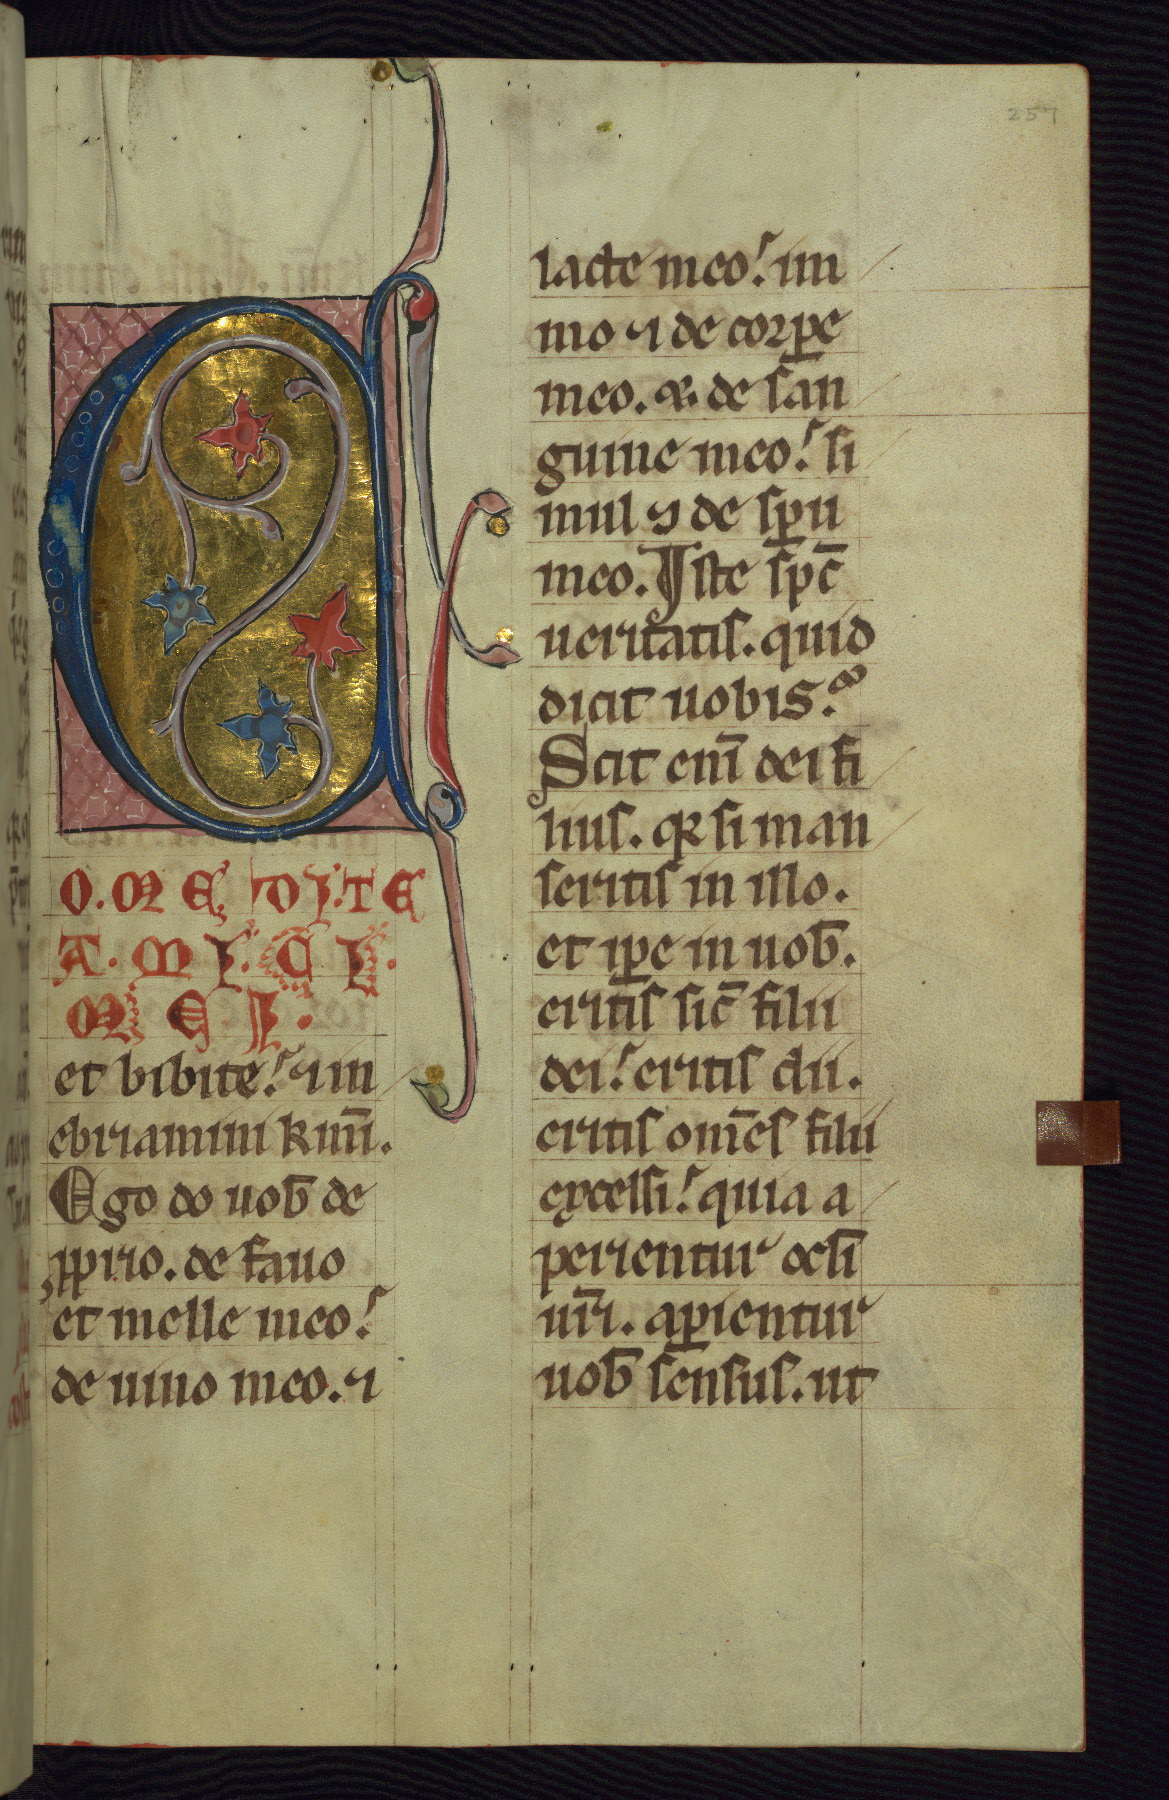 257
C
O.MEDITE
A.MICI.
MEI.
et bibite: ⁊ im
ebriamini k̄imi.
Ego do uob̄ de
ꝓprio. de fauo
et melle meo:
de uino meo. ⁊
lacte meo: im
mo ⁊ de corꝑe
meo. ⁊ de san
guine meo: si
mul ⁊ de sp̄u
meo. Iste sp̄c
ueritatis. quid
dicit uobis?
Scit eni̅ dei fi
lius. qꝛ si man
seritis in illo.
et ip̄e in uob̄.
eritis sic̄ filii
dei: eritis dii.
eritis om̄es filii
excelsi: quia a
perientur celi
ur̄i. aꝑientur
uob̄ sensus. ut